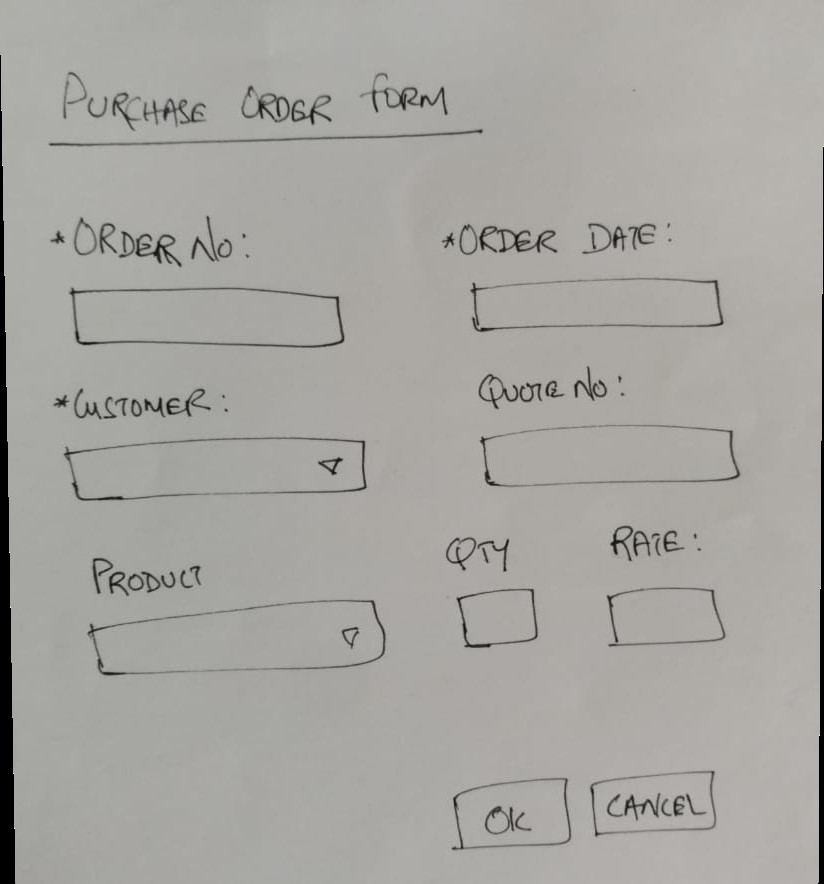 PURCHASE ORDER FORM
*ORDER NO:
*ORDER DATE:
*CUSTOMER:
QUOTE NO:
PRODUCT
QTY
RATE:
OK
CANCEL